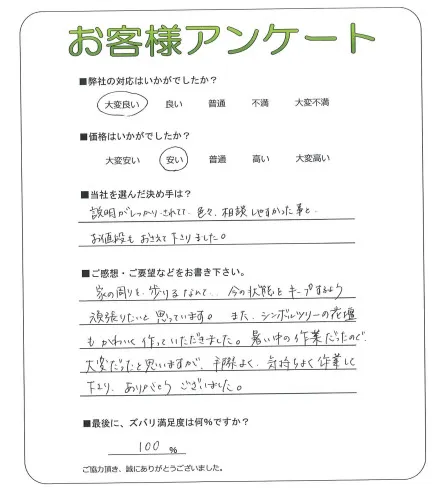 お客様アンケート
■弊社の対応はいかがでしたか？
大変良い 良い 普通 不満 大変不満
■価格はいかがでしたか？
大変安い 安い 普通 高い 大変高い
■当社を選んだ決め手は？
説明がしっかりされてて、色々、相談しやすかった事と、
お値段も おさえて下さりました。
■ご感想・ご要望などをお書き下さい。
家の周りを、歩けるなんて、今の状態を キープするよう
頑張りたいと 思っています。 また、シンボルツリーの花壇
も かわいく 作っていただきました。暑い中の作業だったので、
大変だったと思いますが、手際よく、気持ちよく作業して
下さり、ありがとう ございました。
■最後に、ズバリ満足度は何%ですか？
100 %
ご協力頂き、誠にありがとうございました。